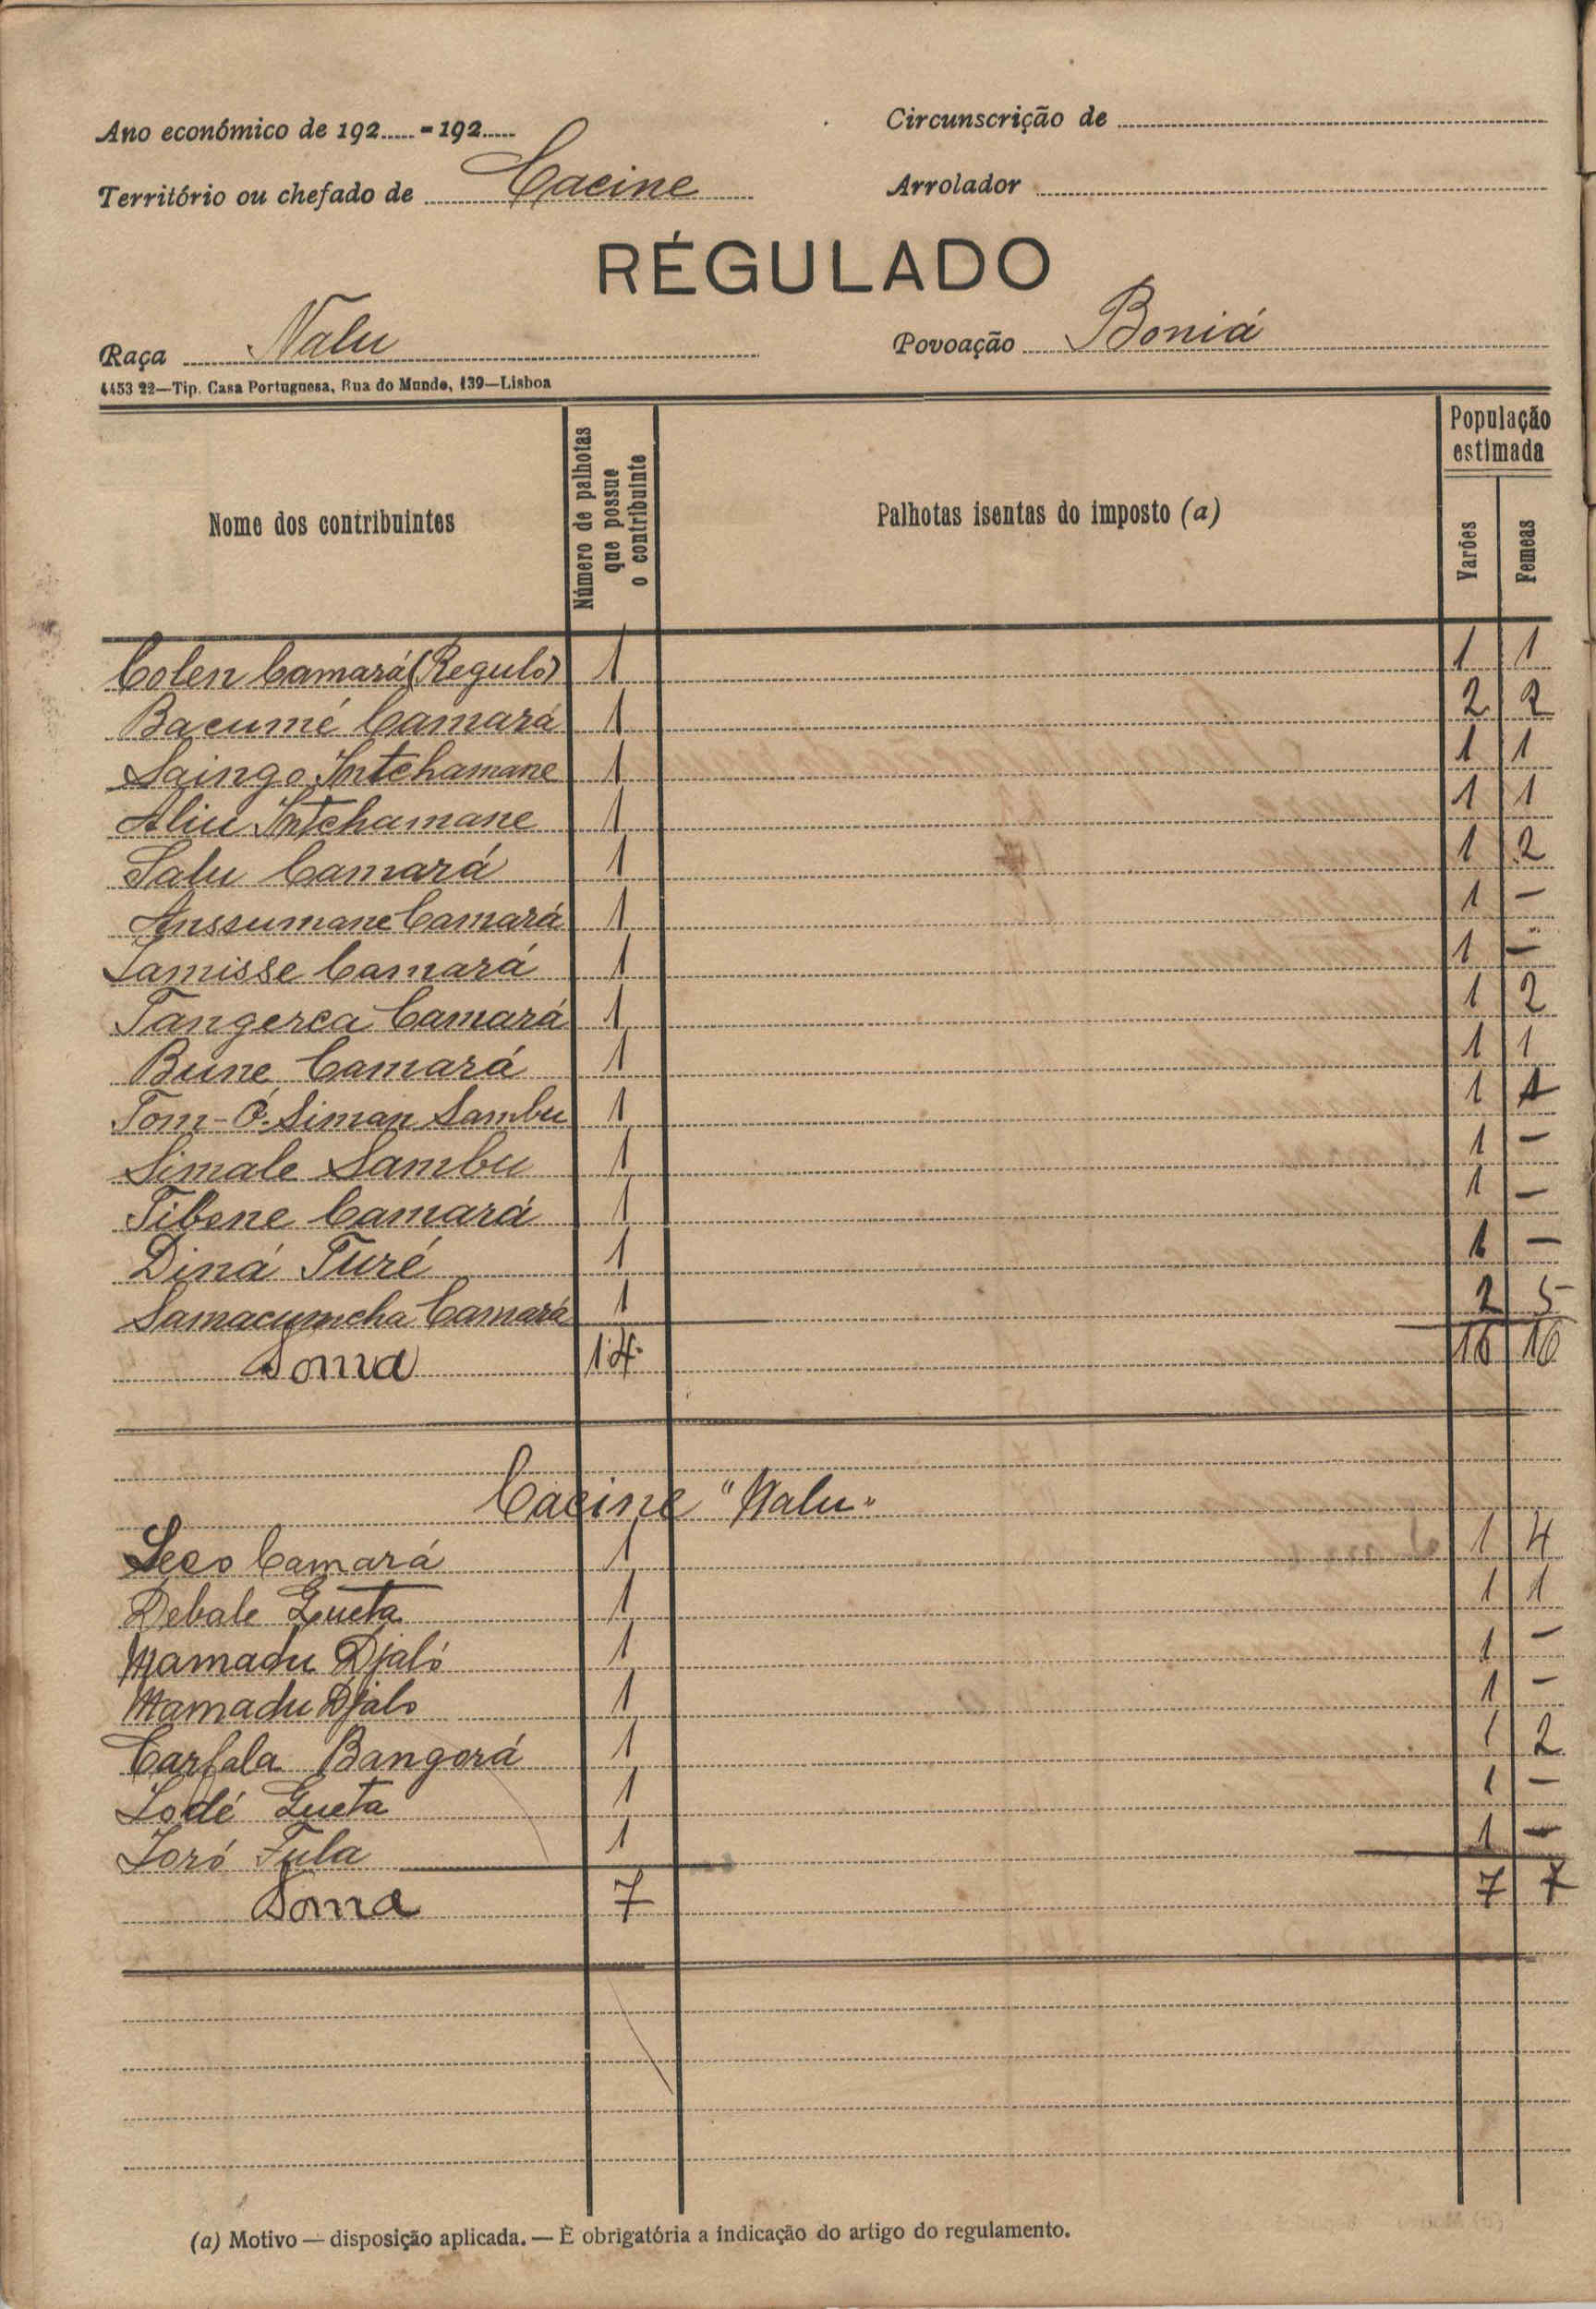 Ano económico de 192..... - 192.....
Circunscrição de
Território ou chefado de Cacine
Arrolador
RÉGULADO
Raça Nalu
Povoação Boniá
4453 22—Tip. Casa Portuguesa, Rua do Mundo, 139—Lisboa
Nome dos contribuintes
Número de palhotas que possue o contribuinte
Palhotas isentas do imposto (a)
População estimada
Varões
Femeas
Colen Camará (Regulo) 1 1 1
Bacumé Camará 1 2 2
Saingo Intchamane 1 1 1
Aliu Intchamane 1 1 1
Salu Camará 1 1 2
Anssumane Camará 1 1 —
Lamisse Camará 1 1 —
Tangerca Camará 1 1 2
Bune Camará 1 1 1
Tom-Ó-Siman Sambu 1 1 1
Simale Sambu 1 1 —
Tibone Camará 1 1 —
Diná Turé 1 1 —
Samacumcha Camará 1 2 5
Soma 14 16 16
Cacine "Nalu"
Seco Camará 1 1 4
Debale Gueta 1 1 1
Mamadu Djaló 1 1 —
Mamadu Djalo 1 1 —
Carfala Bangorá 1 1 2
Lodé Gueta 1 1 —
Loró Fula 1 1 —
Soma 7 7 7
(a) Motivo — disposição aplicada. — É obrigatória a indicação do artigo do regulamento.